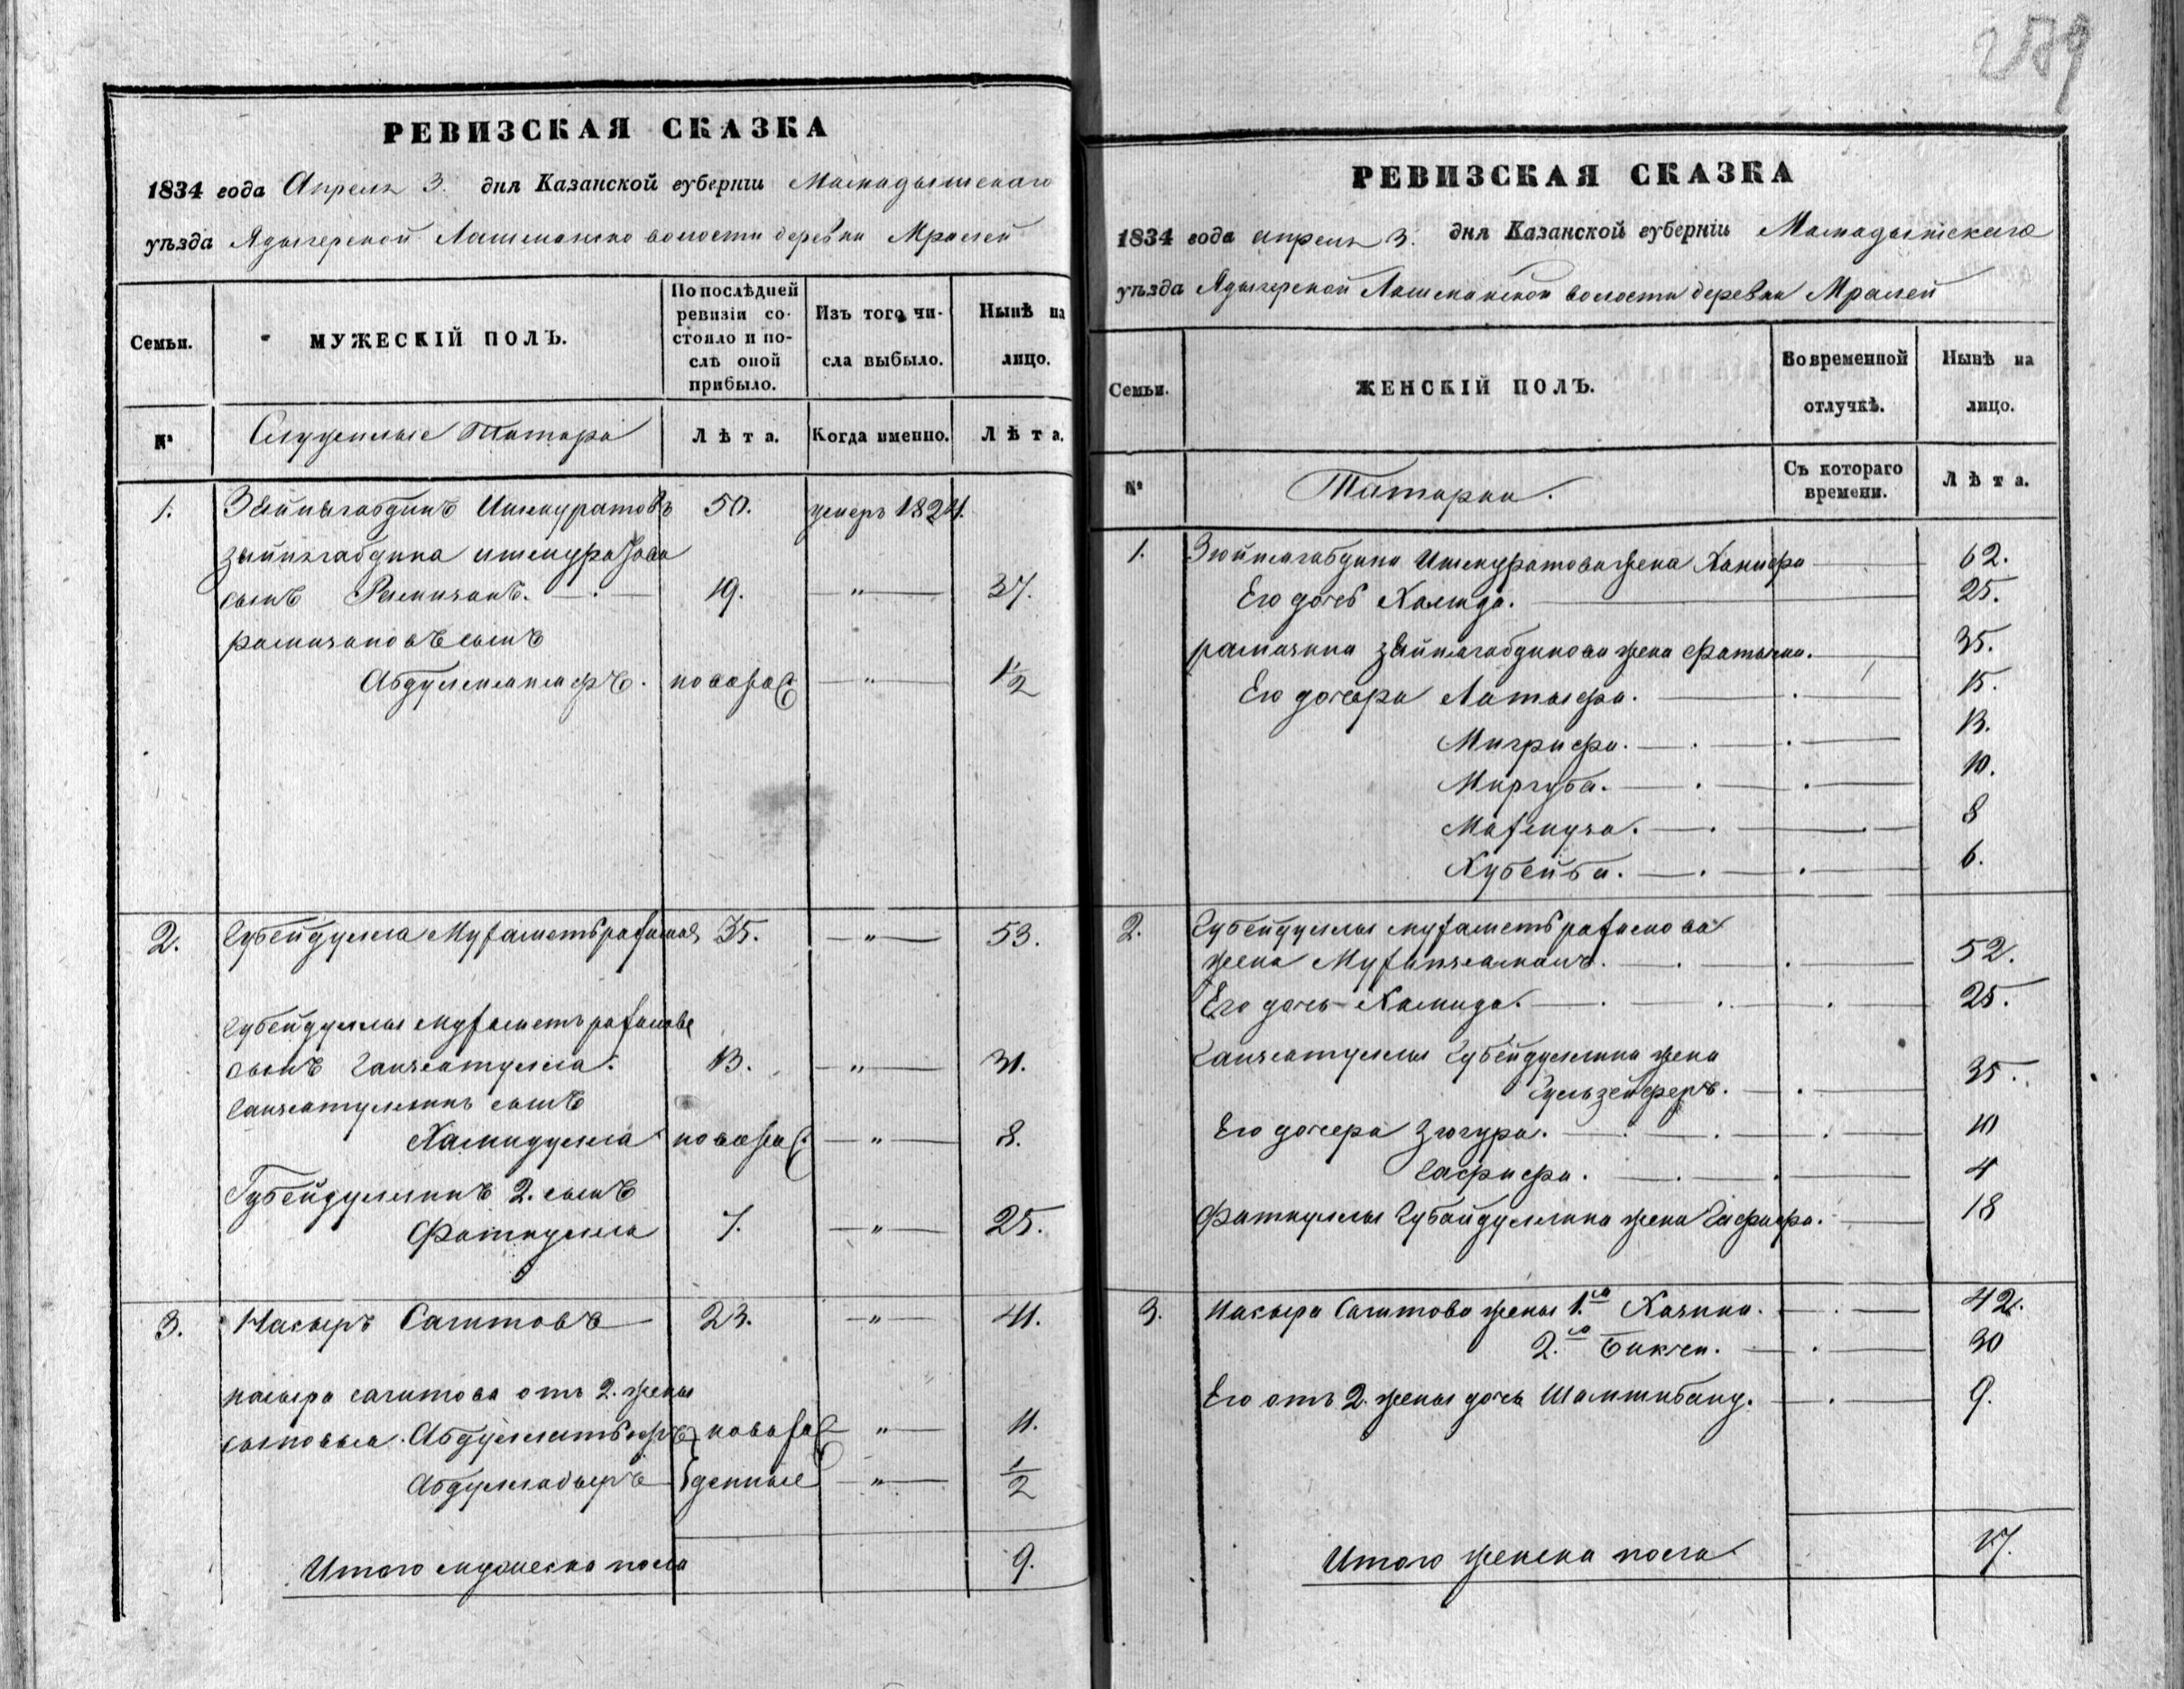 РЕВИЗСКАЯ СКАЗКА
1834 года Апреля 3. дня Казанской губернiи Мамадышскаго
уѣзда Ядыгерской Лашманско волости деревни Мрялей
Семьи.
МУЖЕСКIЙ ПОЛЪ.
По послѣдней ревизiи со-
стояло и по-
слѣ оной
прибыло.
Изъ того чи-
сла выбыло.
Нынѣ на
лицо.
№
Служилые Татара
Лѣта.
Когда именно.
Лѣта.
1. Зяйнягабдинъ Ишмуратовъ 50. умеръ 1824.
зяйнягабдина ишмуратова
сынъ Рамязанъ. 19. " 37.
рамязановъ сынъ
Абдулменафъ. новорож " 1/2
2. Губейдулла Мухаметьрахимовъ 35. " 53.
Губейдуллы мухаметьрахимова
сынъ Ганеатулла. 13. " 31.
Ганеатуллинъ сынъ
Хамидулла новорож " 8.
Губейдуллинъ 2. сынъ
Фаткулла 7. " 25.
3. Насыръ Сагитовъ 23. " 41.
насыра сагитова отъ 2. жены
сыновья. Абдуллатыфъ новорож " 11.
Абдулкабыръ денные " 1/2
Итого мужеска пола 9.
РЕВИЗСКАЯ СКАЗКА
1834 года апреля 3. дня Казанской губернiи Мамадышскаго
уѣзда Ядыгерской Лашманской волости деревни Мрялей
Семьи.
ЖЕНСКIЙ ПОЛЪ.
Во временной
отлучкѣ.
Нынѣ на
лицо.
№
Татарки.
Съ котораго
времени.
Лѣта.
1. Зяйнягабдина Ишмуратова жена Ханифа 62.
Его дочь Халида. 25.
рамазана зяйнягабдинова жена Фатыма. 35.
Его дочери Латыфа. 15.
Миграфа. 13.
Миргуба. 10.
Махмуза. 8
Хубейба. 6.
2. Губейдуллы мухаметьрахимова
жена 52.
Его дочь Хамида. 25.
Ганеатуллы Губейдуллина жена
35.
Его дочери Зюгура. 10
Гафифа. 4
Фаткуллы Губайдуллина жена Гафифа. 18
3. Насыра Сагитова жены 1.ая 42.
2.ая Бикчен. 30
Его отъ 2. жены дочь Шамшибану. 9.
Итого женска пола 17.